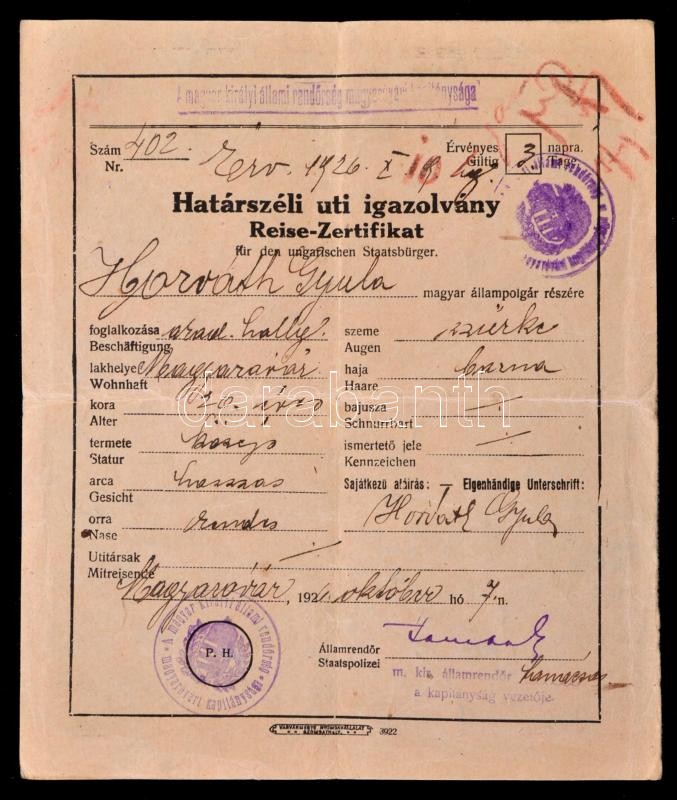 A magyar királyi állami rendőrség magyaróvári kapitánysága
Szám 402.
Nr.
Érv. 1926. X
Érvényes 3 napra.
Giltig Tage.
Határszéli uti igazolvány
Reise-Zertifikat
für den ungarischen Staatsbürger.
Horváth Gyula magyar állampolgár részére
foglalkozása akad. hallg.
Beschäftigung
lakhelye Magyaróvár
Wohnhaft
kora éves
Alter
termete
Statur
arca hosszas
Gesicht
orra rendes
Nase
szeme szürke
Augen
haja barna
Haare
bajusza
Schnurrbart
ismertető jele
Kennzeichen
Sajátkezű aláírás: — Eigenhändige Unterschrift:
Horváth Gyula
Utitársak
Mitreisende
Magyaróvár, 192 október hó 7. n.
P. H.
A magyar királyi állami rendőrség magyaróvári kapitánysága
Államrendőr
Staatspolizei
m. kir. államrendőr
a kapitányság vezetője.
VASVÁRMEGYE NYOMDAVÁLLALAT
SZOMBATHELY.
3922
darabanth